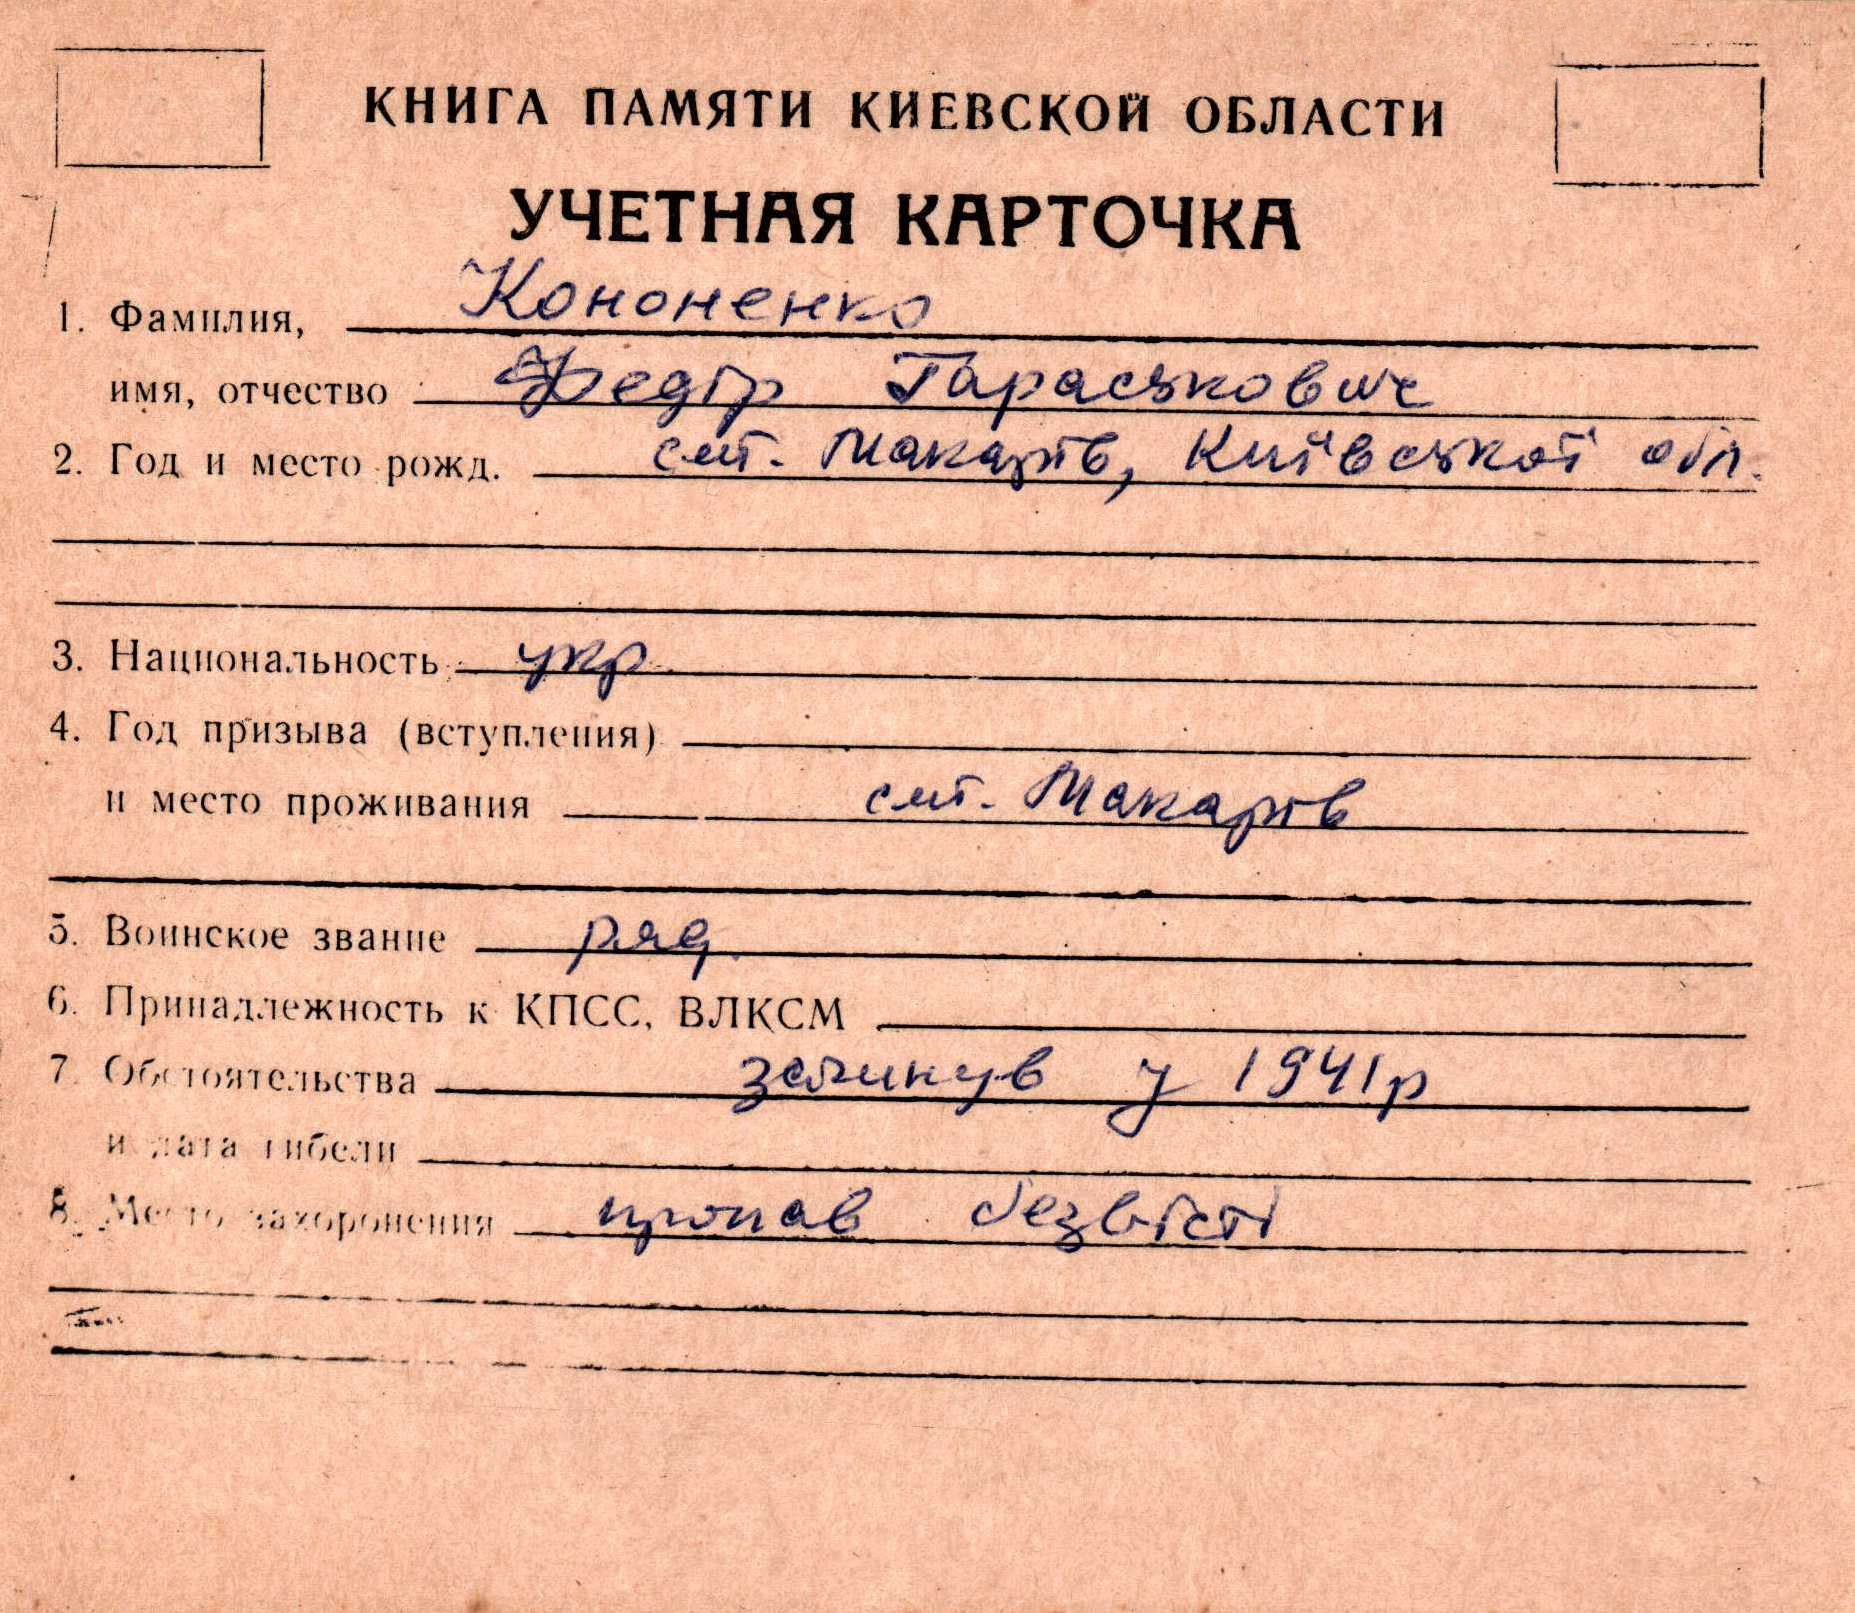 КНИГА ПАМЯТИ КИЕВСКОЙ ОБЛАСТИ
УЧЕТНАЯ КАРТОЧКА
1. Фамилия, Кононенко
имя, отчество Федір Тараськович
2. Год и место рожд. смт. Макарів, Київської обл.
3. Национальность укр.
4. Год призыва (вступления)
и место проживания смт. Макарів
5. Воинское звание ряд.
6. Принадлежность к КПСС, ВЛКСМ
7. Обстоятельства загинув у 1941р
и дата гибели
8. Место захоронения пропав безвісті